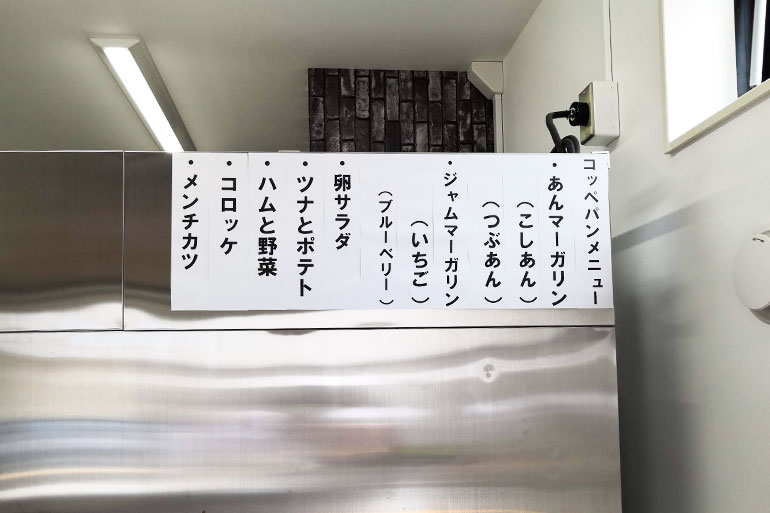 コッペパンメニュー
・あんマーガリン
（こしあん）
（つぶあん）
・ジャムマーガリン
（いちご）
（ブルーベリー）
・卵サラダ
・ツナとポテト
・ハムと野菜
・コロッケ
・メンチカツ